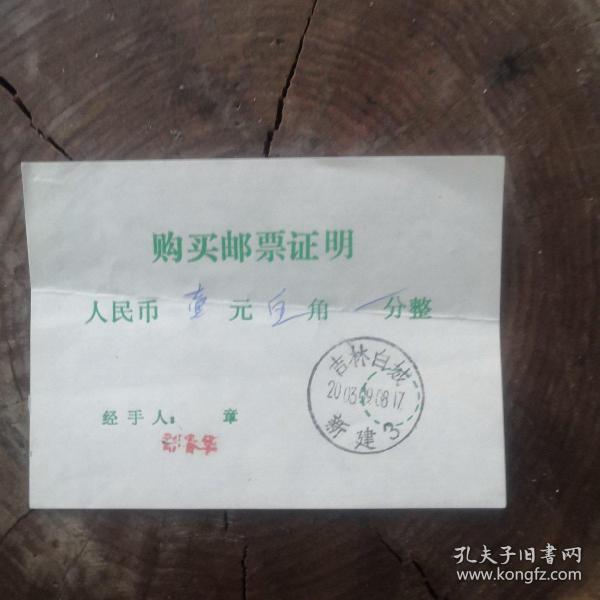 购买邮票证明
人民币 壹 元 角 分整
吉林白城
2003.09.08.17
新建 3
经手人： 章
孔夫子旧书网
www.kongfz.com